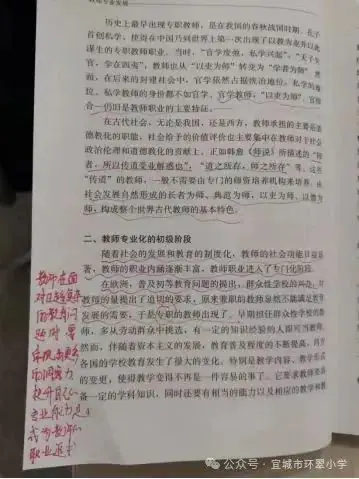 教师专业发展
历史上最早出现专职教师，是在我国的春秋战国时期。孔子
首创私学，使得在中国乃到世界上第一次出现了以教为业并以此
谋生的专职教师职业。当时，“官学发衰，私学兴起”，“天子失
官，学在四夷”，教师也从“以吏为师”转变为“学者为师”。然
而，在后来的封建社会中，官学依然占据统治地位。私学的地
位、私学教师的身份都不如官学。官学教师，“以吏为师”，官师
合一仍旧是教师职业的主要特征。
在古代社会，无论是我国，还是西方，教师承担的主要是道
德教化的职能，社会给予的价值评价也主要集中在教师对于社会
政治伦理和道德教化的贡献上。正如韩愈《师说》所描述的“师
者，所以传道受业解惑也”，“道之所存，师之所存”等。这些
“传道”的教师，一般不需要由专门的师资培养机构来培养。由
社会发展自然形成的长者为师、典范为师、以吏为师、以僧为
师，构成整个世界古代教师的基本特色。
二、教师专业化的初级阶段
随着社会的发展和教育的制度化，教师的社会功能日益显
著，教师的职业内涵逐渐丰富，教师职业进入了专门化阶段。
在欧洲，普及初等教育问题的提出，群众性学校的兴起，对
教师的量提出了迫切的要求，原来兼职的教师显然不能满足教育
发展的需要，于是专职的教师出现了。早期担任群众性学校的教
师，多从劳动群众中挑选，有一定的知识经验的人即可当教师。
然而，伴随着资本主义的发展，教育普及程度的不断提高，西方
各国的学校教育发生了很大的变化。特别是教学内容、教学形式
的变更，使得教学变得不再是一件容易的事了。它要求教师要具
备一定的学科知识，同时还要有相当的能力以及相应的教学和教
教师在面
对日趋复杂
的教育问
题时，需
升自己
专业能力
成为教师
职业追求
公众号·宜城市环翠小学